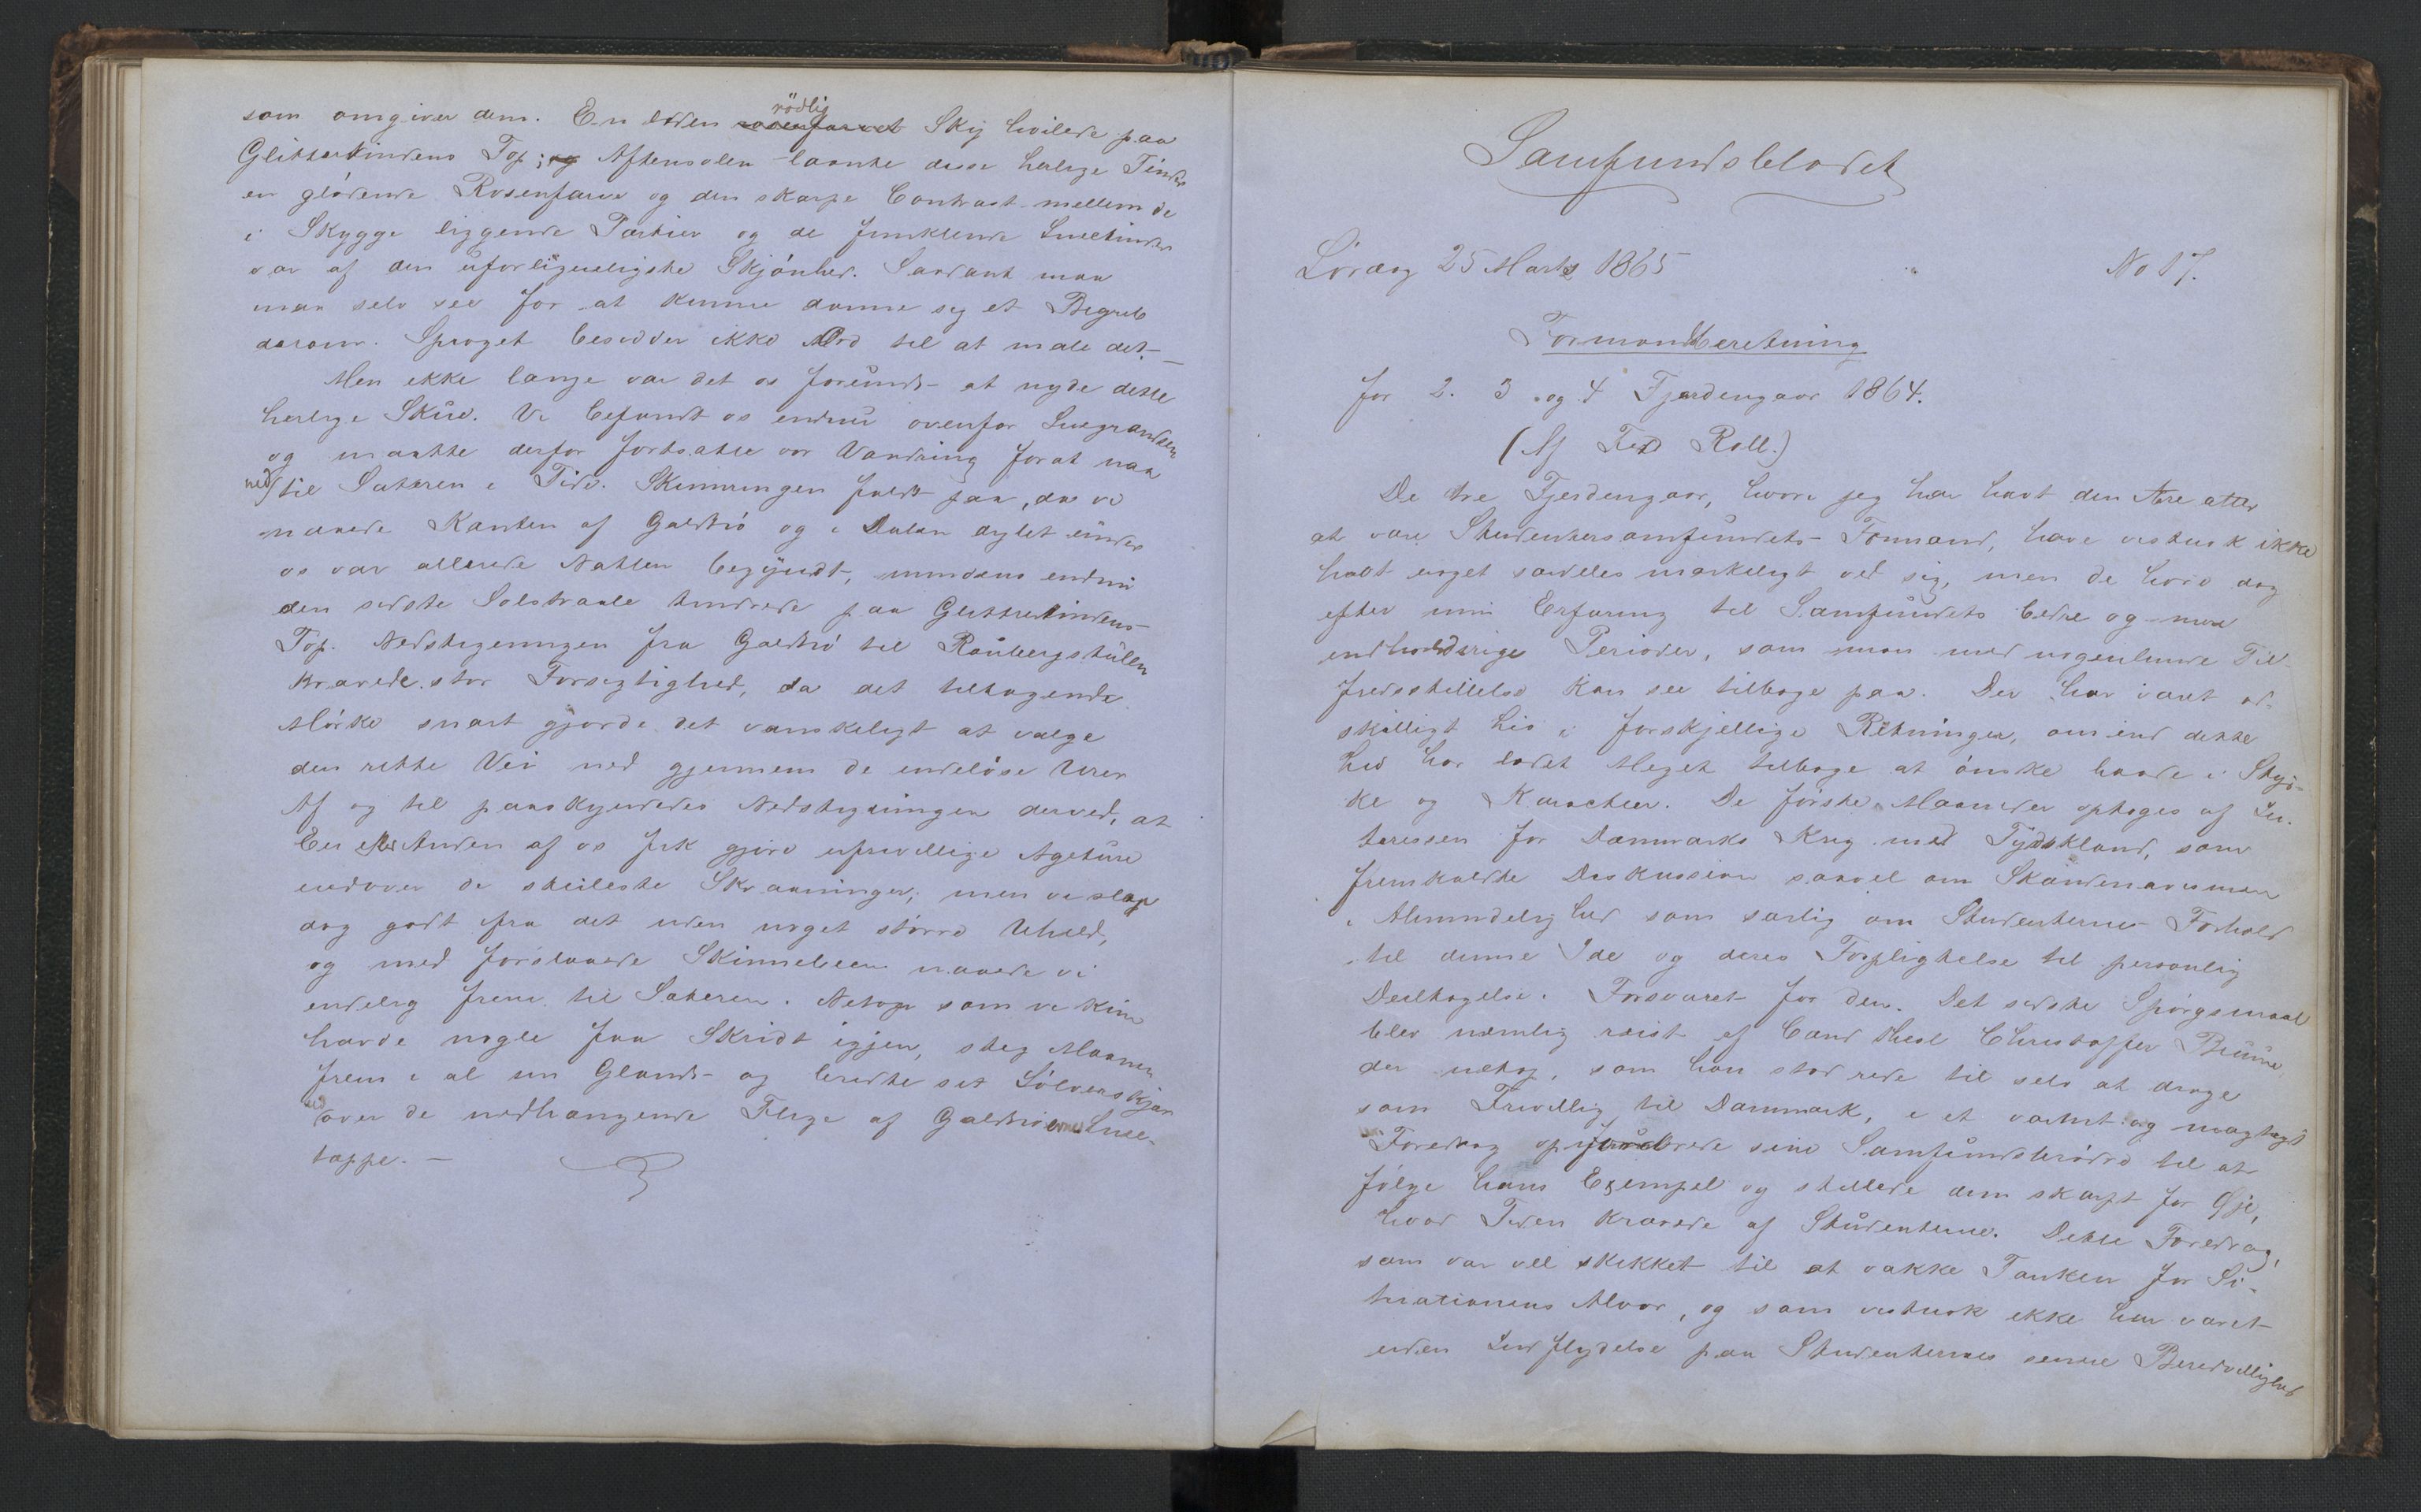 som omgiver dem. En liden rosenfarvet rödlig Sky hvilede paa
Glittertindens Top; og Aftensolen laante disse herlige Tinder
en glödende Rosenfarve og den skarpe Contrast mellem de
i Skygge liggende Partier og de funklende Sneetinder
var af den uforligneligste Skjönhed. Saadant maa
man selv see for at kunne danne sig et Begreb
derom. Sproget besidder ikke Ord til at male det. —
Men ikke længe var det os forundt at nyde dette
herlige Skue. Vi befandt os endnu ovenfor Sneegrændsen
og maatte derfor fortsætte vor Vandring forat naa
ned til Sæteren i Tide. Skumringen faldt paa, da vi
naaede Kanten af Galdhö og i Dalen dybt under
os var allerede Natten begyndt, mindens endnu
den sidste Solstraale tindrede paa Glittertindens
Top. Nedstigningen fra Galdhö til Raubergstulen
krævede stor Forsigtighed, da det tiltagende
Mörke snart gjorde det vanskeligt at vælge
den rette Vei ned gjennem de endelöse Urer
Af og til paaskyndedes Nedstigningen derved, at
En eller Anden af os fik gjöre ufrivillige Ageture
udover de steileste Skraaninger; men vi slap
dog godt fra det uden noget större Uheld,
og med forslaaede Skinnebeen naaede vi
endelig frem til Sæteren. Netop som vi kun
havde nogle faa Skridt igjen, steg Maanen
frem i al sin Glands og bredte sit Sölverskjær
ud over de nedhængende Flige af Galdhöernes Snee-
tæppe. —
Samfundsbladet
Lördag 25 Marts 1865 No 17.
Formandsberetning
for 2. 3 og 4 Fjerdingaar 1864.
(Af Ferd Roll.)
De tre Fjerdingaar, hvori jeg har havt den Ære atter
at være Studentersamfundets Formand, have vistnok ikke
havt noget særdeles mærkeligt ved sig, men de höre dog
efter min Erfaring til Samfundets bedre og mere
indholdsrige Perioder, som man med nogenlunde Til-
fredsstillelse kan see tilbage paa. Der har været ad-
skilligt Liv i forskjellige Retninger, om end dette
Liv har ladet Meget tilbage at önske baade i Styr-
ke og Karacteer. De förste Maaneder optoges af In-
teressen for Danmarks Krig med Tydskland, som
fremkaldte Diskussion saavel om Skandinavismen
i Almindelighed som særlig om Studenternes Forhold
til denne Ide og deres Forpligtelse til personlig
Deeltagelse i Forsvaret for den. Det sidste Spörgsmaal
blev nemlig reist af Cand theol Christopher Bruun,
der netop, som han stod rede til selv at drage
som Frivillig til Danmark, i et varmt og mægtigt
Foredrag opfordrede sine Samfundsbrödre til at
fölge hans Exempel og stillede dem skarpt for Öje,
hvad Tiden krævede af Studenterne. Dette Foredrag,
som var vel skikket til at vække Tanken for Si-
tuationens Alvor, og som vistnok ikke har været
uden Indflydelse paa Studenternes senere Beredvillighed